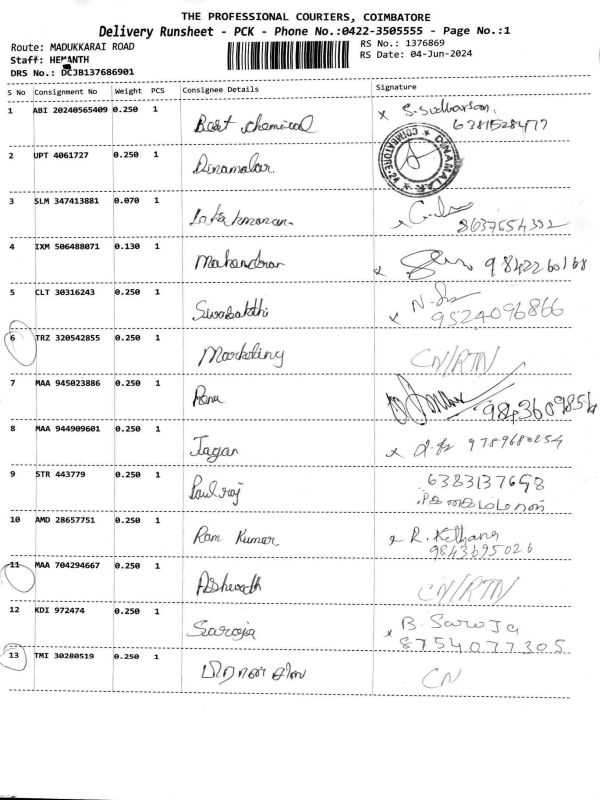 THE PROFESSIONAL COURIERS, COIMBATORE
Delivery Runsheet - PCK - Phone No.:0422-3505555 - Page No.:1
Route: MADUKKARAI ROAD
RS No.: 1376869
Staff: HEMANTH
RS Date: 04-Jun-2024
DRS No.: DCJB137686901
S No Consignment No Weight PCS Consignee Details Signature
1 ABI 20240565409 0.250 1 Best chemical x S. Sudharsan,
6381528477
2 UPT 4061727 0.250 1 Dinamalar
DINAMALAR COIMBATORE-2
3 SLM 347413881 0.070 1
8637654332
4 IXM 506488071 0.130 1 Mahendran x 9842260168
5 CLT 30316243 0.250 1 Sivabakthi x
9524096866
6 TRZ 320542855 0.250 1 Marketing CN/RTN
7 MAA 945023886 0.250 1 Banu
8 MAA 944909601 0.250 1 Jagan x 9789680254
9 STR 443779 0.250 1 Paulraj 6383137698
10 AMD 28657751 0.250 1 Ram Kumar x R.
9843695026
11 MAA 704294667 0.250 1 Ashwath CN/RTN
12 KDI 972474 0.250 1 Saroja x B. Saroja
8754077305
13 TMI 30280519 0.250 1 CN